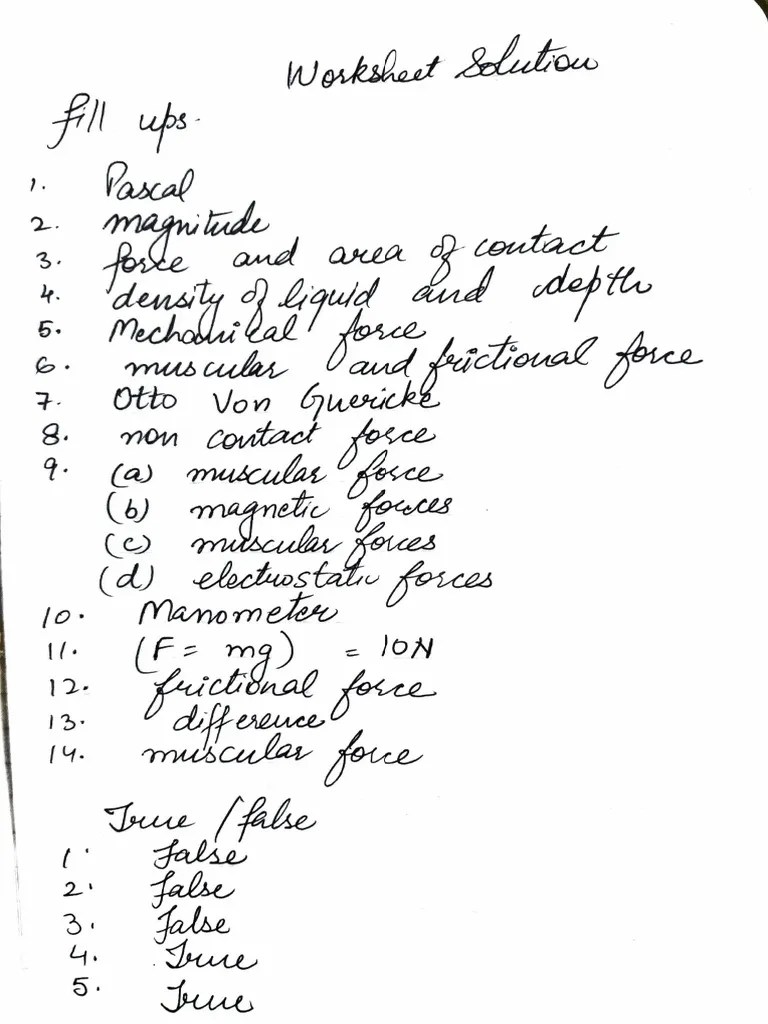 Worksheet Solution
fill ups.
1. Pascal
2. magnitude
3. force and area of contact
4. density of liquid and depth
5. Mechanical force
6. muscular and frictional force
7. Otto Von Guericke
8. non contact force
9. (a) muscular force
(b) magnetic forces
(c) muscular forces
(d) electrostatic forces
10. Manometer
11. (F = mg) = 10N
12. frictional force
13. difference
14. muscular force
True / false
1. False
2. false
3. False
4. True
5. True